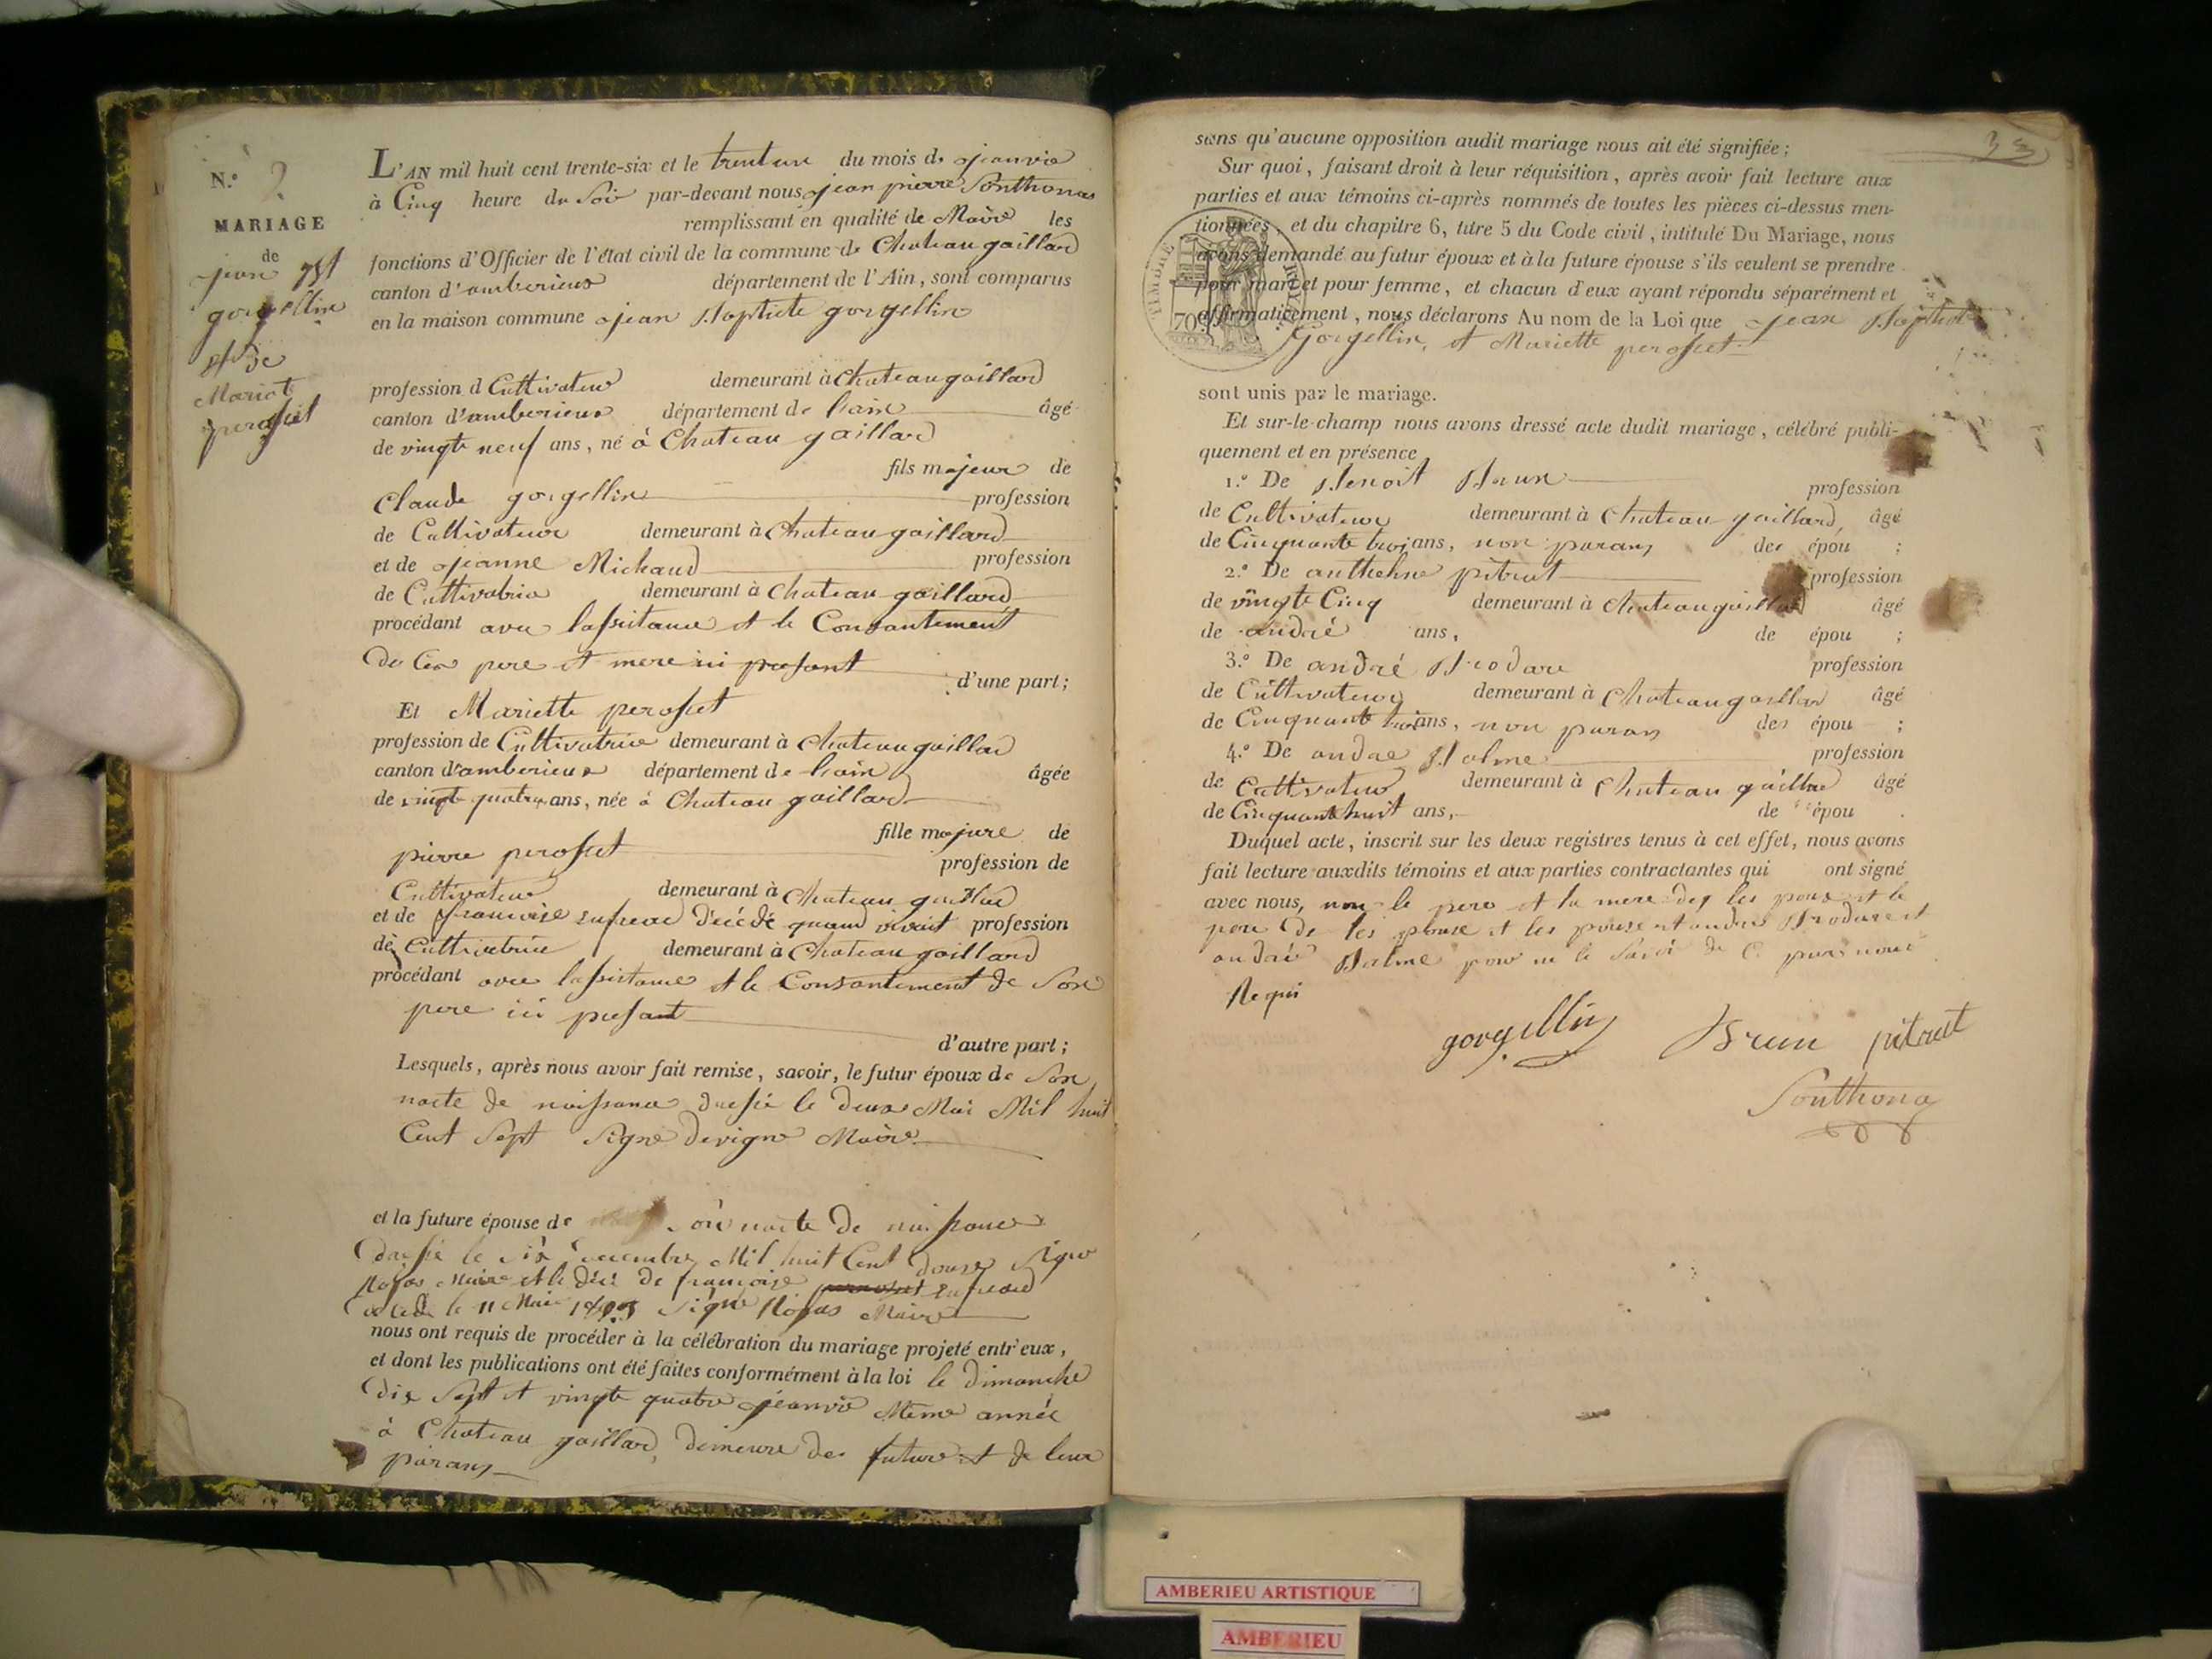 N.º 2
MARIAGE
de
jean Bst
gorgellin
et de
Mariet
peroset
L'AN mil huit cent trente-six et le trentune du mois de jeanvie
à Cinq heure du Soir par-devant nous jean pierre Sonthonas
remplissant en qualité de Maire les
fonctions d'Officier de l'état civil de la commune de Chateau gaillard
canton d'amberieux département de l'Ain, sont comparus
en la maison commune jean Baptiste gorgellin
profession d Cultivateur demeurant à Chateaugaillard
canton d'amberieux département de l'ain âgé
de vingte neuf ans, né à Chateau gaillard
fils majeur de
Claude gorgellin profession
de Cultivateur demeurant à Chateaugaillard
et de jeanne Michaud profession
de Cultivatrice demeurant à Chateau gaillard
procédant avec lassistance et le Consantement
de Ces pere et mere ici presant
d'une part;
Et Mariette peroset
profession de Cultivatrice demeurant à Chateau gaillar
canton d'amberieux département de l'ain âgée
de vingt quatre ans, née à Chateau gaillard
fille majeure de
pierre peroset profession de
Cultivateur demeurant à Chateau gaillar
et de francoise decédé quand vivait profession
de Cultivatrice demeurant à Chateau gaillard
procédant avec lassistance et le Consantement de Son
pere ici presant
d'autre part;
Lesquels, après nous avoir fait remise, savoir, le futur époux de Son
nacte de naissance dressé le deux Mai Mil huit
Cent Sept Signé devigne Maire
et la future épouse de son nacte de naissance
dressé le six Mil huit Cent douze Signé
Maire et le décé de françoise
le 11 Mai Signé Maire
nous ont requis de procéder à la célébration du mariage projeté entr'eux,
et dont les publications ont été faites conformément à la loi le dimanche
dix Sept et vingte quatre jeanvie Meme année
à Chateau gaillard, demeure des future et de leur
parans
sans qu'aucune opposition audit mariage nous ait été signifiée;
Sur quoi, faisant droit à leur réquisition, après avoir fait lecture aux
parties et aux témoins ci-après nommés de toutes les pièces ci-dessus men-
tionnées, et du chapitre 6, titre 5 du Code civil, intitulé Du Mariage, nous
avons demandé au futur époux et à la future épouse s'ils veulent se prendre
pour mari et pour femme, et chacun d'eux ayant répondu séparément et
affirmativement, nous déclarons Au nom de la Loi que jean Baptiste
Gorgellin, et Mariette peroset
TIMBRE ROYAL
70
sont unis par le mariage.
Et sur-le-champ nous avons dressé acte dudit mariage, célébré publi-
quement et en présence
1.º De Benoit Brun profession
de Cultivateur demeurant à Chateau gaillard, âgé
de Cinquante trois ans, non parans des épou ;
2.º De anthelme pitrat profession
de vingte Cinq demeurant à Chateaugaillar âgé
de andré ans, de épou ;
3.º De andré Brodare profession
de Cultivateur demeurant à Chateaugaillar âgé
de Cinquante trois ans, non parans des épou ;
4.º De andre Balme profession
de Cultivateur demeurant à Chateau gaillar âgé
de Cinquante huit ans, de épou
Duquel acte, inscrit sur les deux registres tenus à cet effet, nous avons
fait lecture auxdits témoins et aux parties contractantes qui ont signé
avec nous, non le pere et la mere des les poux et le
pere de les pouse et les pouse et andre Brodare et
andré Balme pour ne le Savoir de C
Requi
gorgellin Brun pitrat
Sonthona
AMBERIEU ARTISTIQUE
AMBERIEU